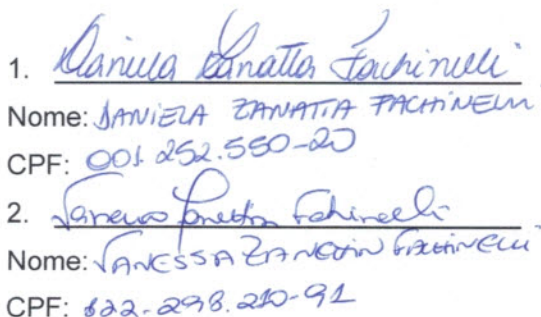 1. Daniela Zanatta Fachinelli
Nome: DANIELA ZANATTA FACHINELLI
CPF: 001.252.550-20
2. Vanessa Fachinelli
Nome: VANESSA FACHINELLI
CPF: 822.298.210-91